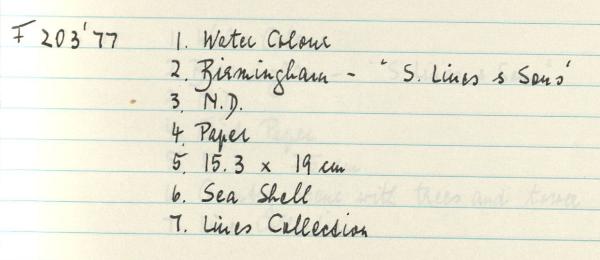 F 203'77 1. Water Colour
2. Birmingham - "S. Lines & Sons"
3. N.D.
4. Paper
5. 15.3 x 19 cm
6. Sea Shell
7. Lines Collection